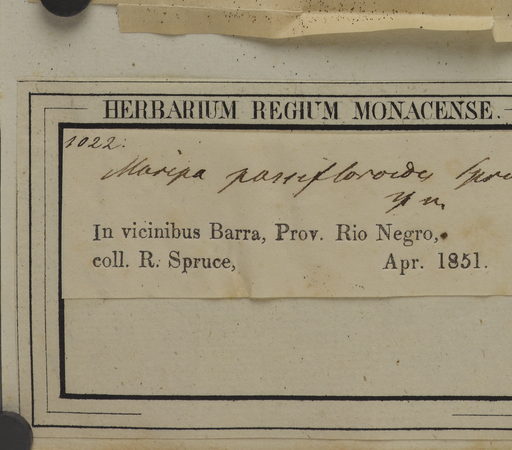 HERBARIUM REGIUM MONACENSE.
1022.
Maripa passifloroides Spru
In vicinibus Barra, Prov. Rio Negro,
coll. R. Spruce, Apr. 1851.